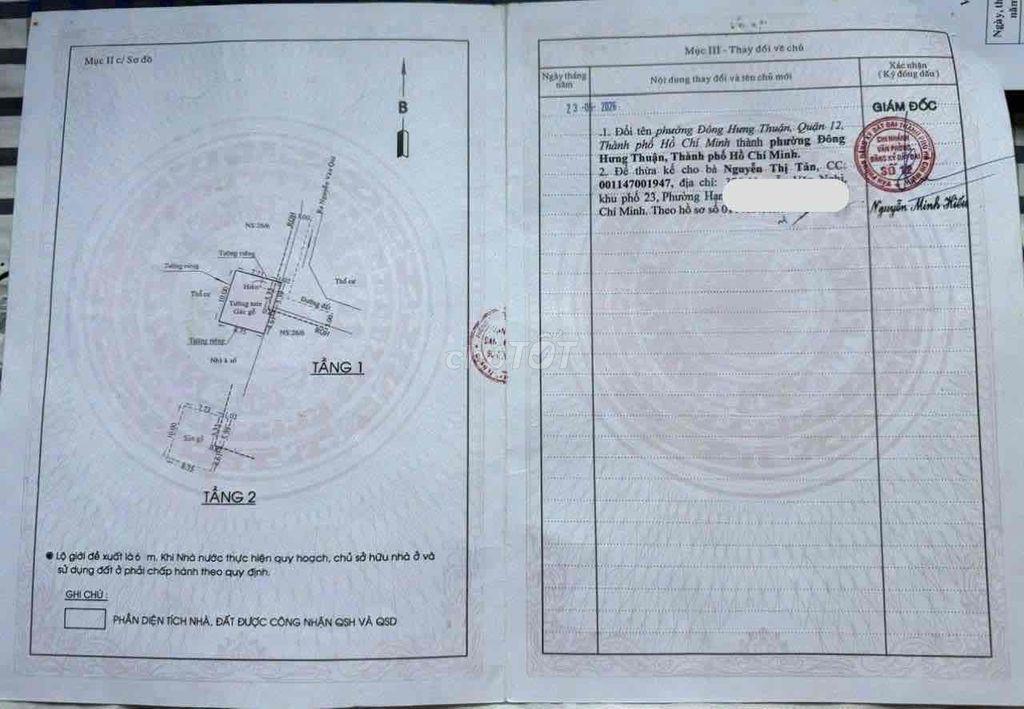 Mục II c/ Sơ đồ
B
Ra Nguyễn Văn Quá
RGH
5.00
NS:26/6
Tường riêng
Tường riêng
7.73
Thổ cư
Hiên
Thổ cư
10.00
Tường trát
Gác gỗ
Đường đất
RGH
8.75
NS:26/6
Tường riêng
Nhà k số
TẦNG 1
7.73
10.00
Sàn gỗ
8.75
TẦNG 2
Lộ giới đề xuất là 6 m. Khi Nhà nước thực hiện quy hoạch, chủ sở hữu nhà ở và
sử dụng đất ở phải chấp hành theo quy định.
GHI CHÚ :
PHẦN DIỆN TÍCH NHÀ, ĐẤT ĐƯỢC CÔNG NHẬN QSH VÀ QSD
Mục III - Thay đổi về chủ
Ngày tháng năm
Nội dung thay đổi và tên chủ mới
Xác nhận
( Ký đóng dấu )
23 -05- 2026
GIÁM ĐỐC
.1. Đổi tên phường Đông Hưng Thuận, Quận 12,
Thành phố Hồ Chí Minh thành phường Đông
Hưng Thuận, Thành phố Hồ Chí Minh.
2. Để thừa kế cho bà Nguyễn Thị Tân, CC:
001147001947, địa chỉ:
khu phố 23, Phường
Chí Minh. Theo hồ sơ số
CHI NHÁNH
VĂN PHÒNG
ĐĂNG KÝ ĐẤT ĐAI
SỐ 12
Nguyễn Minh Hiếu
chợTỐT
Ngày, th
năm